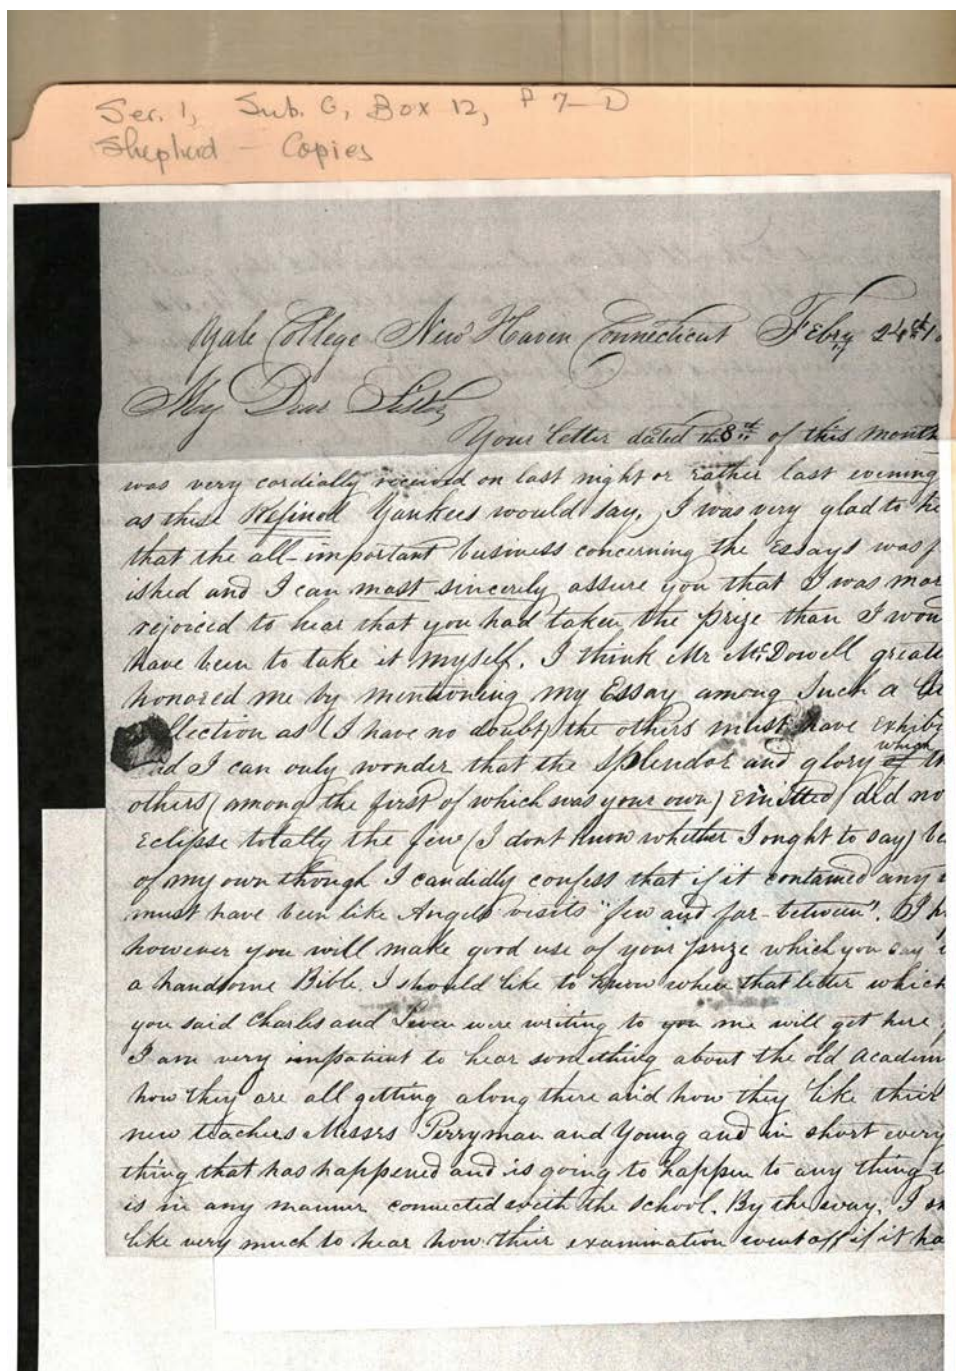 Ser. 1, Sub. C, Box 12, P 7-D
Shepherd - Copies
Yale College New Haven Connecticut Febry 24th
My Dear Sister
Your letter dated the 8th of this month
was very cordially received on last night or rather last evening
as these Refined Yankees would say. I was very glad to he
that the all-important business concerning the Essays was f
ished and I can most sincerely assure you that I was mor
rejoiced to hear that you had taken the prize than I woul
have been to take it myself. I think Mr McDowell greatl
honored me by mentioning my Essay among such a
llection as (I have no doubt) the others must have exhib
I can only wonder that the splendor and glory which
others (among the first of which was your own) emitted did no
Eclipse totally the few (I dont know whether I ought to say) be
of my own though I candidly confess that if it contained any
must have been like Angels visits "few and far-between". I
however you will make good use of your prize which you say
a handsome Bible. I should like to know when that letter which
you said Charles and were writing to you me will get here
I am very impatient to hear something about the old academ
how they are all getting along there and how they like their
new teachers Messrs Perryman and Young and in short every
thing that has happened and is going to happen to any thing t
is in any manner connected with the school. By the way, I
like very much to hear how their examination went off if it ha